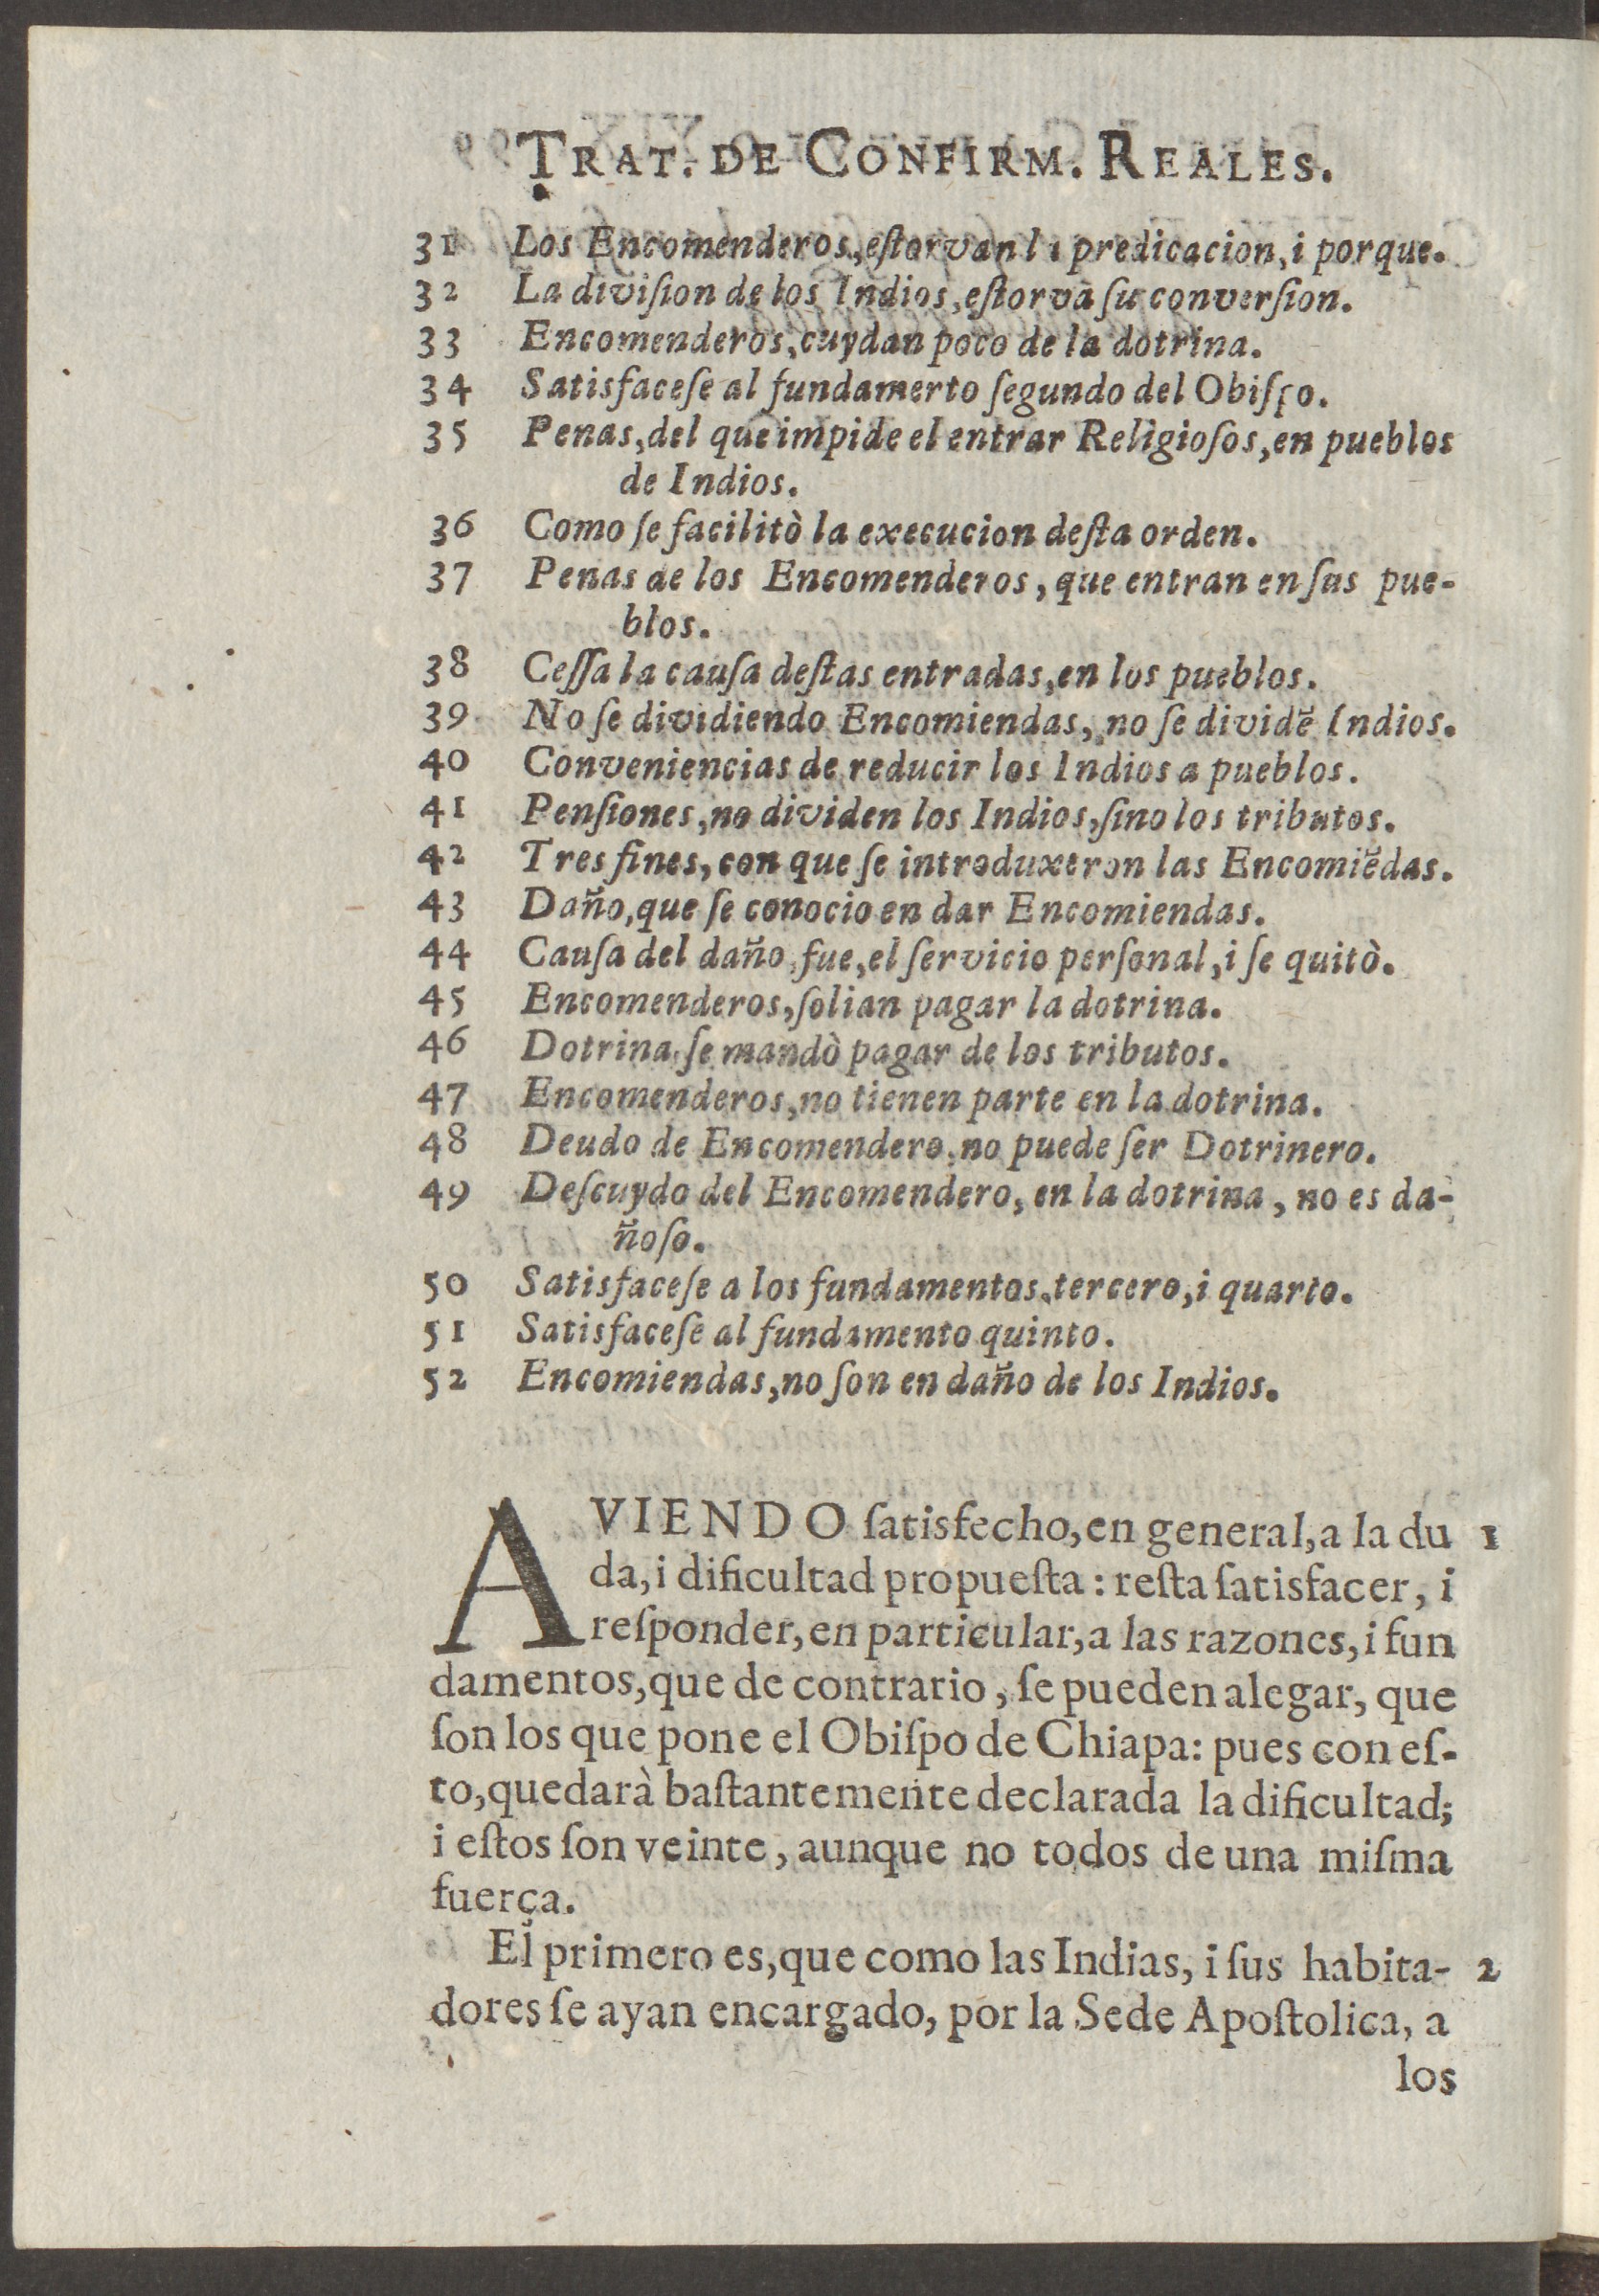 TRAT. DE CONFIRM. REALES.
31 Los Encomenderos, eſtorvan la predicacion, i porque.
32 La diviſion de los Indios, eſtorva ſu converſion.
33 Encomenderos, cuydan poco de la dotrina.
34 Satisfaceſe al fundamerto ſegundo del Obiſpo.
35 Penas, del que impide el entrar Religioſos, en pueblos
de Indios.
36 Como ſe facilitò la execucion deſta orden.
37 Penas de los Encomenderos, que entran en ſus pue-
blos.
38 Ceſſa la cauſa deſtas entradas, en los pueblos.
39 No ſe dividiendo Encomiendas, no ſe dividẽ Indios.
40 Conveniencias de reducir los Indios a pueblos.
41 Penſiones, no dividen los Indios, ſino los tributos.
42 Tres fines, con que ſe introduxeron las Encomiẽdas.
43 Daño, que ſe conocio en dar Encomiendas.
44 Cauſa del daño, fue, el ſervicio perſonal, i ſe quitò.
45 Encomenderos, ſolian pagar la dotrina.
46 Dotrina, ſe mandò pagar de los tributos.
47 Encomenderos, no tienen parte en la dotrina.
48 Deudo de Encomendero, no puede ſer Dotrinero.
49 Deſcuydo del Encomendero, en la dotrina, no es da-
ñoſo.
50 Satisfaceſe a los fundamentos, tercero, i quarto.
51 Satisfaceſe al fundamento quinto.
52 Encomiendas, no ſon en daño de los Indios.
AVIENDO ſatisfecho, en general, a la du 1
da, i dificultad propueſta: reſta ſatisfacer, i
reſponder, en particular, a las razones, i fun
damentos, que de contrario, ſe pueden alegar, que
ſon los que pone el Obiſpo de Chiapa: pues con eſ-
to, quedarà baſtantemente declarada la dificultad;
i eſtos ſon veinte, aunque no todos de una miſma
fuerça.
El primero es, que como las Indias, i ſus habita- 2
dores ſe ayan encargado, por la Sede Apoſtolica, a
los